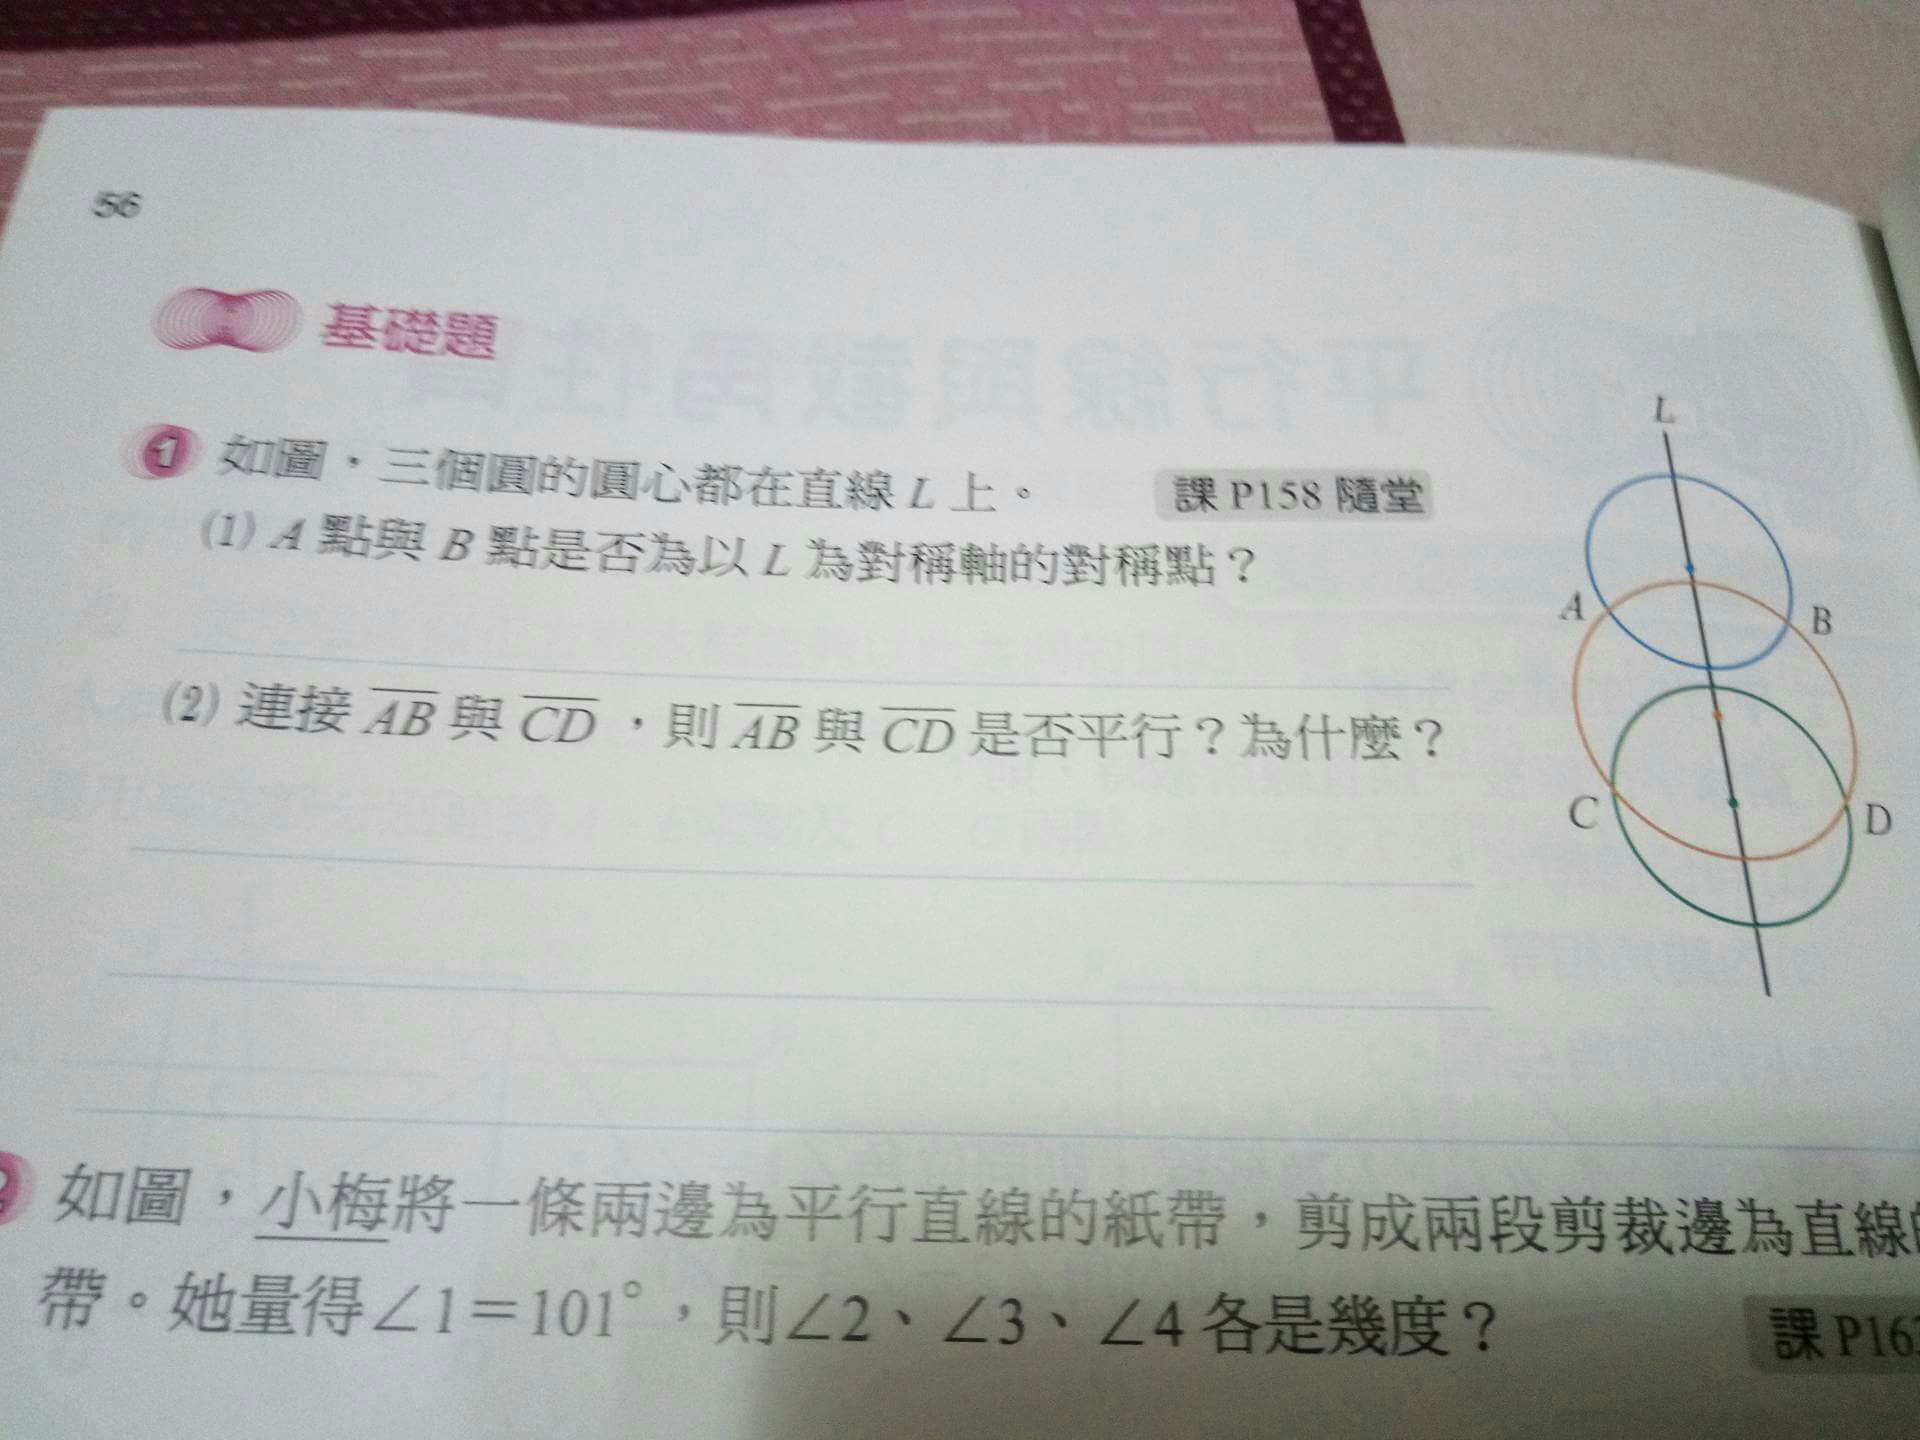 56
基礎題
1 如圖，三個圓的圓心都在直線 L 上。 課 P158 隨堂
(1) A 點與 B 點是否為以 L 為對稱軸的對稱點？
(2) 連接 AB 與 CD，則 AB 與 CD 是否平行？為什麼？
L
A
B
C
D
如圖，小梅將一條兩邊為平行直線的紙帶，剪成兩段剪裁邊為直線
帶。她量得∠1＝101°，則∠2、∠3、∠4 各是幾度？
課 P16